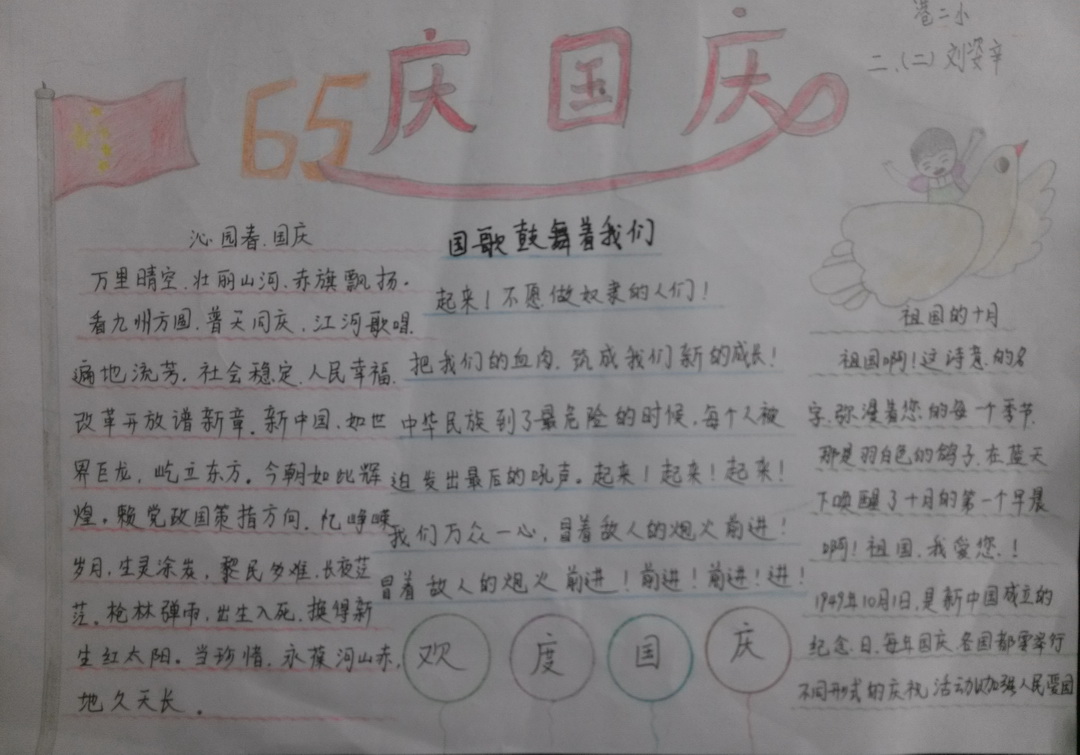 港二小
二、(二)刘姿辛
65庆国庆
沁园春.国庆
万里晴空.壮丽山河.赤旗飘扬.
看九州方圆.普天同庆.江河歌唱.
遍地流芳.社会稳定.人民幸福.
改革开放谱新章.新中国.如世
界巨龙,屹立东方。今朝如此辉
煌。赖党政国策指方向.忆峥嵘
岁月.生灵涂炭,黎民多难.长夜茫
茫.枪林弹雨,出生入死.换得新
生红太阳。当珍惜.永葆河山赤,
地久天长。
国歌鼓舞着我们
起来!不愿做奴隶的人们!
把我们的血肉.筑成我们新的成长!
中华民族到了最危险的时候,每个人被
迫发出最后的吼声。起来!起来!起来!
我们万众一心,冒着敌人的炮火前进!
冒着敌人的炮火前进!前进!前进!进!
欢度国庆
祖国的十月
祖国啊!这诗意.的名
字.弥漫着您的每一个季节.
那是羽白色的鸽子.在蓝天
下唤醒了十月的第一个早晨
啊!祖国.我爱您.!
1949年10月1日.是新中国成立的
纪念.日.每年国庆.各国都要举行
不同形式的庆祝活动以加强人民爱国